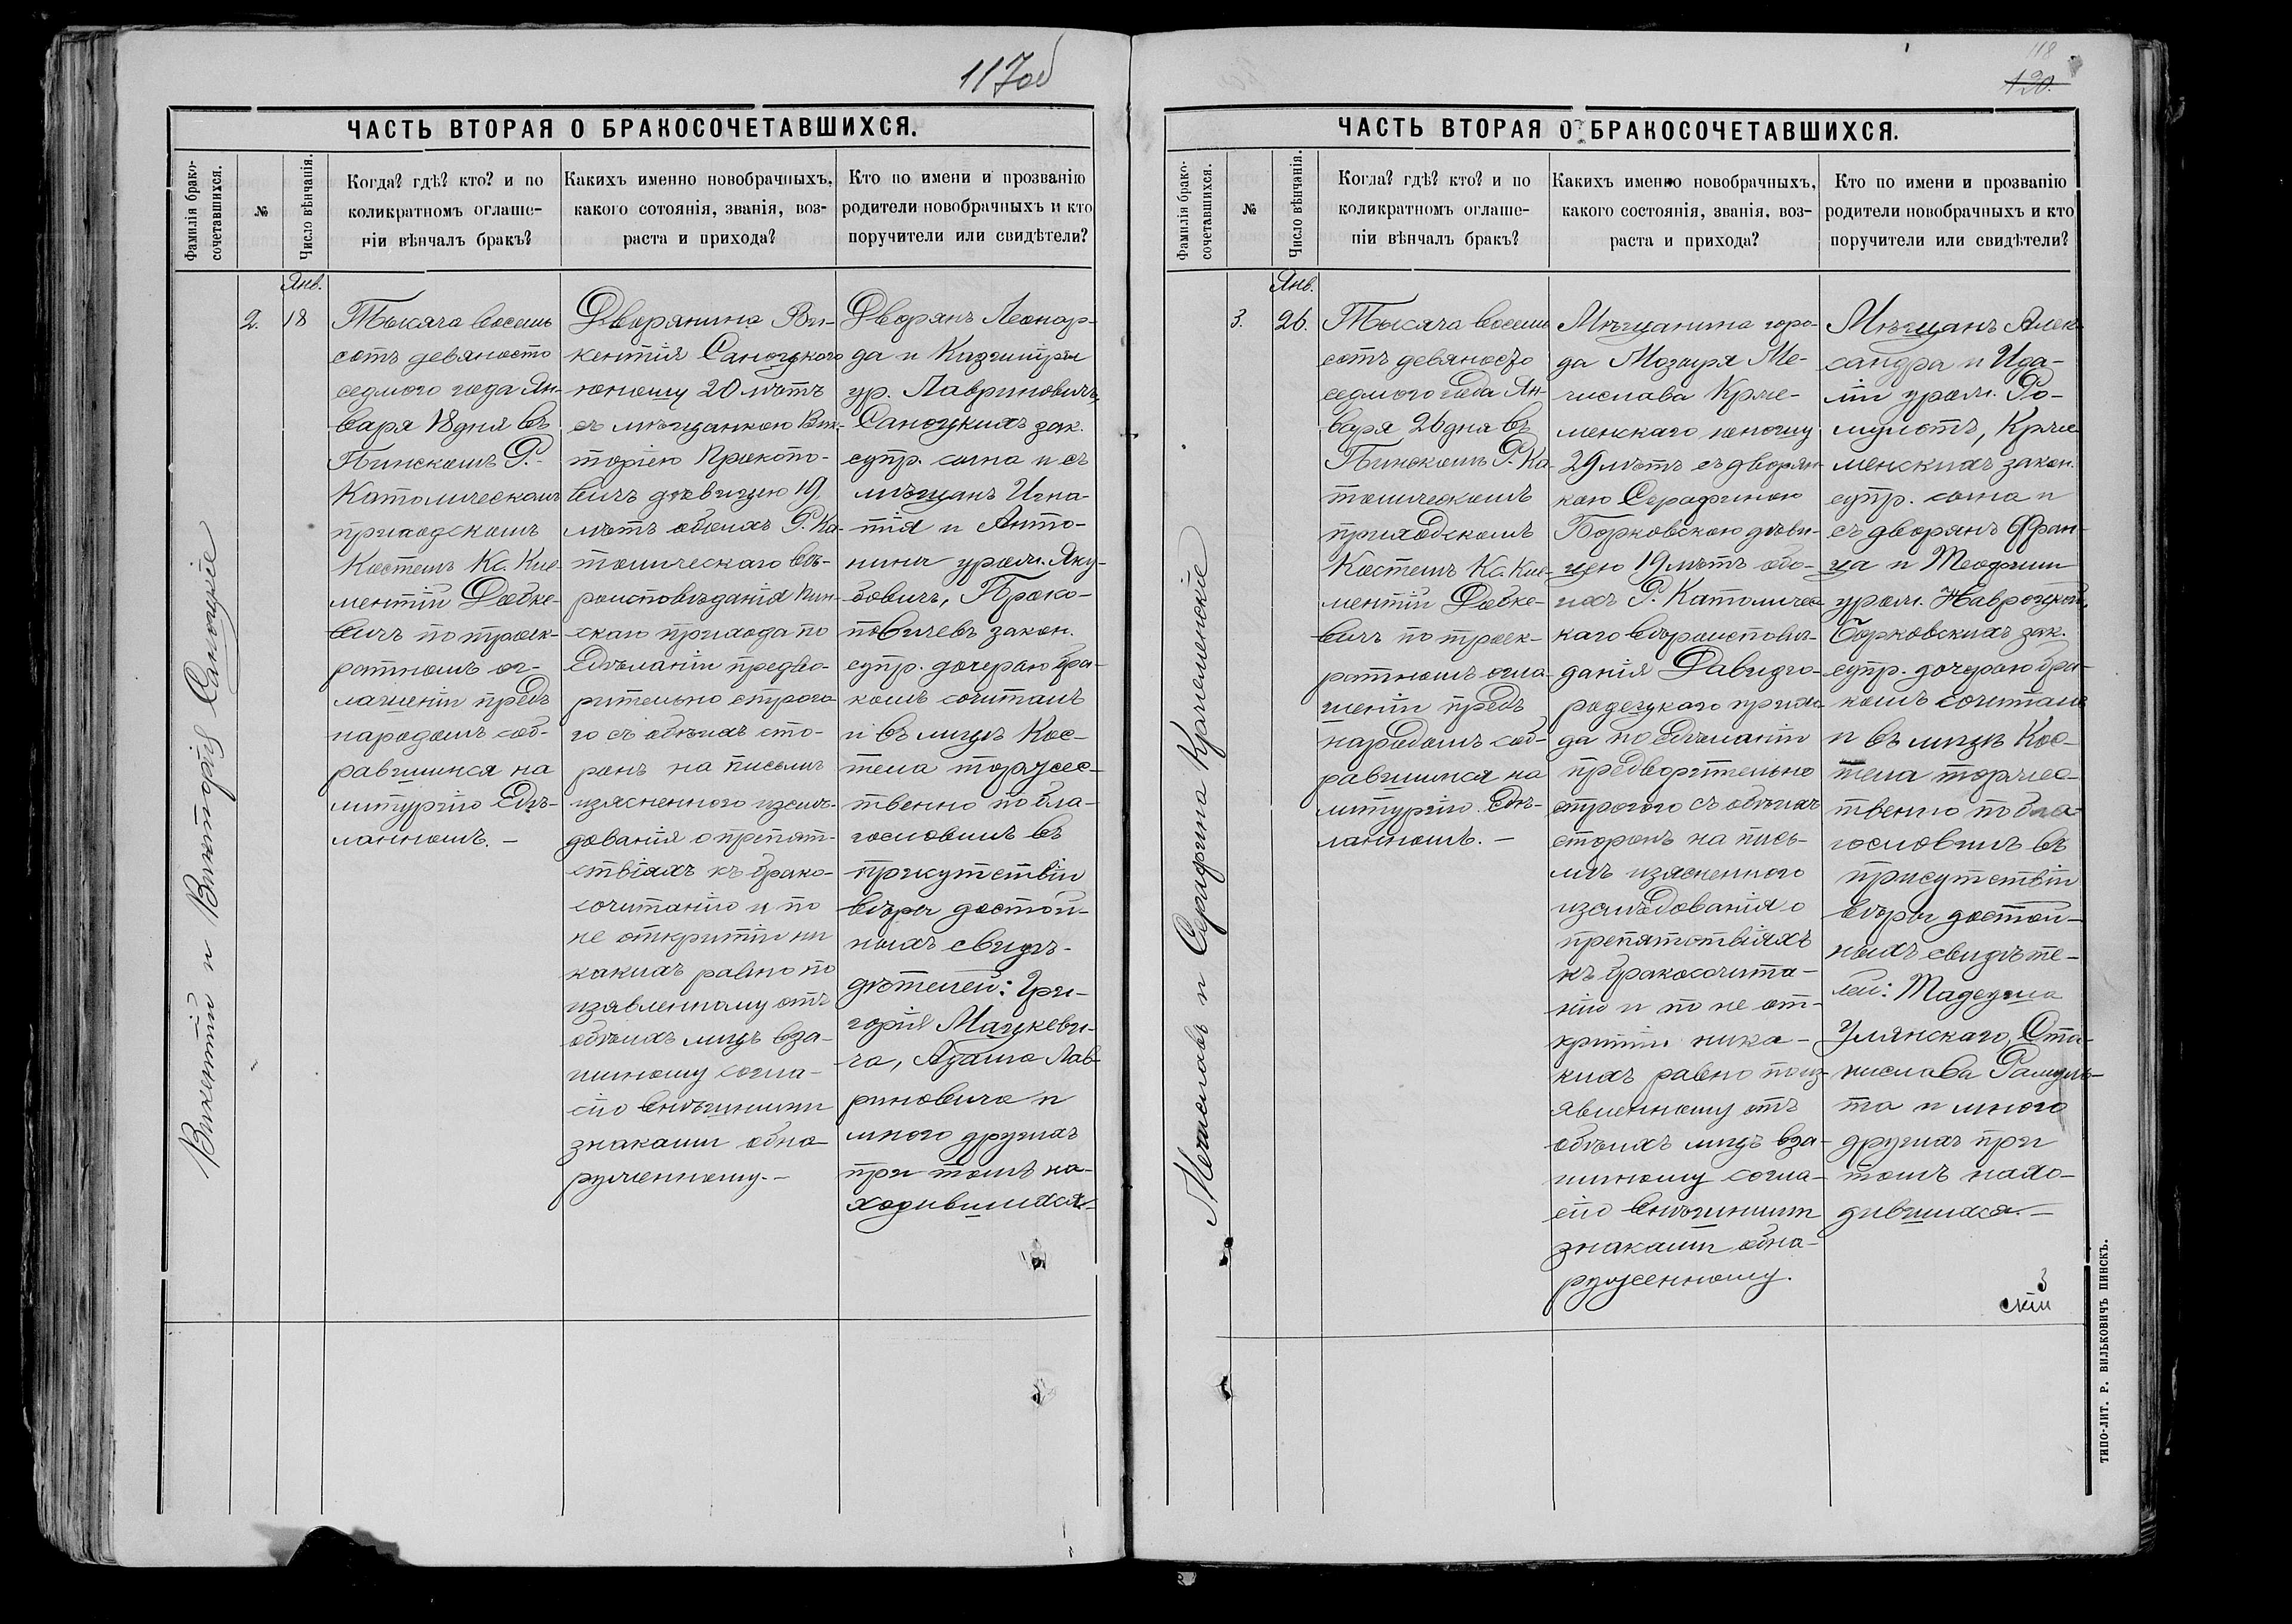 117об
ЧАСТЬ ВТОРАЯ О БРАКОСОЧЕТАВШИХСЯ.
Фамилія брако-
сочетавшихся.
№
Число вѣнчанія.
Когда? гдѣ? кто? и по
коликратномъ оглаше-
ніи вѣнчалъ бракъ?
Какихъ именно новобрачныхъ,
какого сотоянія, званія, воз-
раста и прихода?
Кто по имени и прозванію
родители новобрачныхъ и кто
поручители или свидѣтели?
Викентій и Викторія Саноцкіе
2.
Янв.
18
Тысяча восемь
сотъ девяносто
седмого года Ян-
варя 18 дня въ
Пинскомъ Р.-
Католическомъ
приходскомъ
Костелѣ Кс. Кле-
ментій Добке-
вичъ по троек-
ратномъ ог-
лашеніи предъ
народомъ соб-
равшимся на
литургію Сдѣ-
ланномъ. –
Дворянина Ви-
кентія Саноцкого
юношу 20 лѣтъ
съ мѣщанкою Вик-
торіею Прокопо-
вичъ дѣвицею 19
лѣтъ обоихъ Р. Ка-
толическаго вѣ-
роисповѣданія Пин-
скаго прихода по
Сдѣланіи предва-
рительно строго-
го съ обѣихъ сто-
ронъ на письмѣ
изясненного изслѣ-
дованія о препят-
ствіяхъ къ брако-
сочитанію и по
не откритіи ни
какихъ равно по
изявленному отъ
обѣихъ лицъ вза-
имному согла-
сію внѣшними
знаками обна-
руженному. –
Дворянъ Леонар-
да и Казимиры
ур. Лавриновичъ,
Саноцкихъ зак.
супр. сына и съ
мѣщанъ Игна-
тія и Анто-
нины урожд. Яку-
бовичъ, Проко-
повичевъ закон.
супр. дочерью бра-
комъ сочиталъ
и въ лицѣ Кос-
тела торжес-
твенно побла-
гословилъ въ
присутствіи
вѣры достой-
ныхъ свидѣ-
дѣтелей: Гри-
горія Мацкеви-
ча, Адама Лав-
риновича и
много другихъ
при томъ на-
ходившихся. –
118
120.
ЧАСТЬ ВТОРАЯ О БРАКОСОЧЕТАВШИХСЯ.
Фамилія брако-
сочетавшихся.
№
Число вѣнчанія.
Когда? гдѣ? кто? и по
коликратномъ оглаше-
ніи вѣнчалъ бракъ?
Какихъ именно новобрачныхъ,
какого состоянія, званія, воз-
раста и прихода?
Кто по имени и прозванію
родители новобрачныхъ и кто
поручители или свидѣтели?
Мечиславъ и Серафина Кржеменскіе
3.
Янв.
26.
Тысяча восемь
сотъ девяносто
седмого года Ян-
варя 26 дня въ
Пинскомъ Р. Ка-
толическомъ
приходскомъ
Костелѣ Кс. Кле-
ментій Добке-
вичъ по троек-
ратномъ огла-
шеніи предъ
народомъ соб-
равшимся на
литургію Сдѣ-
ланномъ. –
Мѣщанина горо-
да Мозыря Ме-
числава Крже-
менскаго юношу
29 лѣтъ съ дворян-
кою Серафиною
Борковскою дѣви-
цею 19 лѣтъ обо-
ихъ Р. Католичес-
каго вѣроисповѣ-
данія Давидго-
родецкаго прихо-
да по Сдѣланіи
предворительно
строгого съ обѣихъ
сторонъ на пись-
мѣ изясненного
изслѣдованія о
препятствіяхъ
къ бракосочита-
нію и по не от-
критіи ника-
кихъ равно по из-
явленному отъ
обѣихъ лицъ вза-
имному согла-
сію внѣшними
знаками обна-
руженному.
Мѣщанъ Алек-
сандра и Ида-
ліи урожд. Ро-
мултъ, Крже-
менскихъ закон.
супр. сына и
съ дворянъ Фран-
ца и Теофили
урожд. Навроцкой,
Борковскихъ зак.
супр. дочерью бра-
комъ сочиталъ
и въ лицѣ Кос-
тела торжес-
твенно побла-
гословилъ въ
присутствіи
вѣры достой-
ныхъ свидѣте-
лей: Тадеуша
Улянскаго, Ста-
нислава Ромуль-
та и много
другихъ при
томъ нахо-
дившихся. –
3
скій
ТИПО-ЛИТ. Р. ВИЛЬКОВИЧЪ ПИНСКЪ.